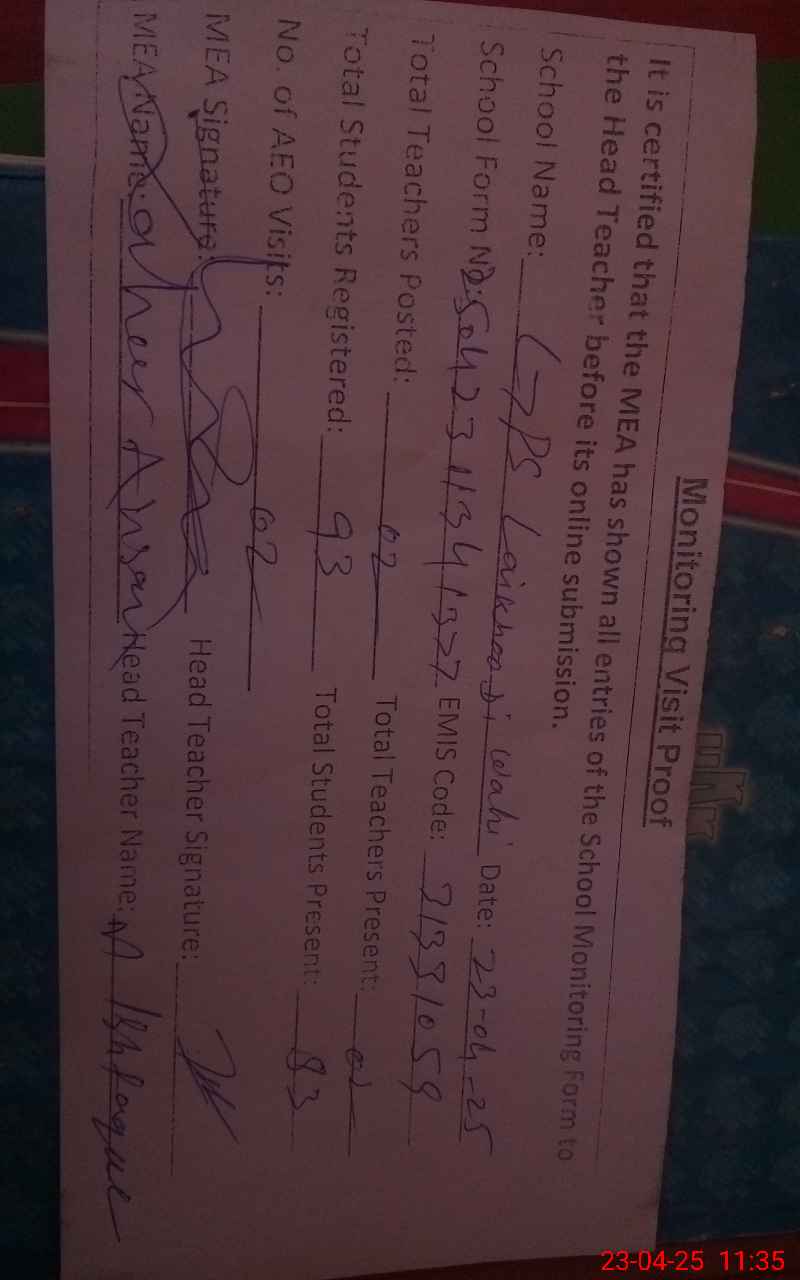 Monitoring Visit Proof
It is certified that the MEA has shown all entries of the School Monitoring Form to
the Head Teacher before its online submission.
School Name: GPS Wahi Date: 23-04-25
School Form No: EMIS Code: 31331059
Total Teachers Posted: 02 Total Teachers Present: 02
Total Students Registered: 93 Total Students Present: 83
No. of AEO Visits: 02
MEA Signature: Head Teacher Signature:
MEA Name: Head Teacher Name: M Ishfaque
23-04-25 11:35